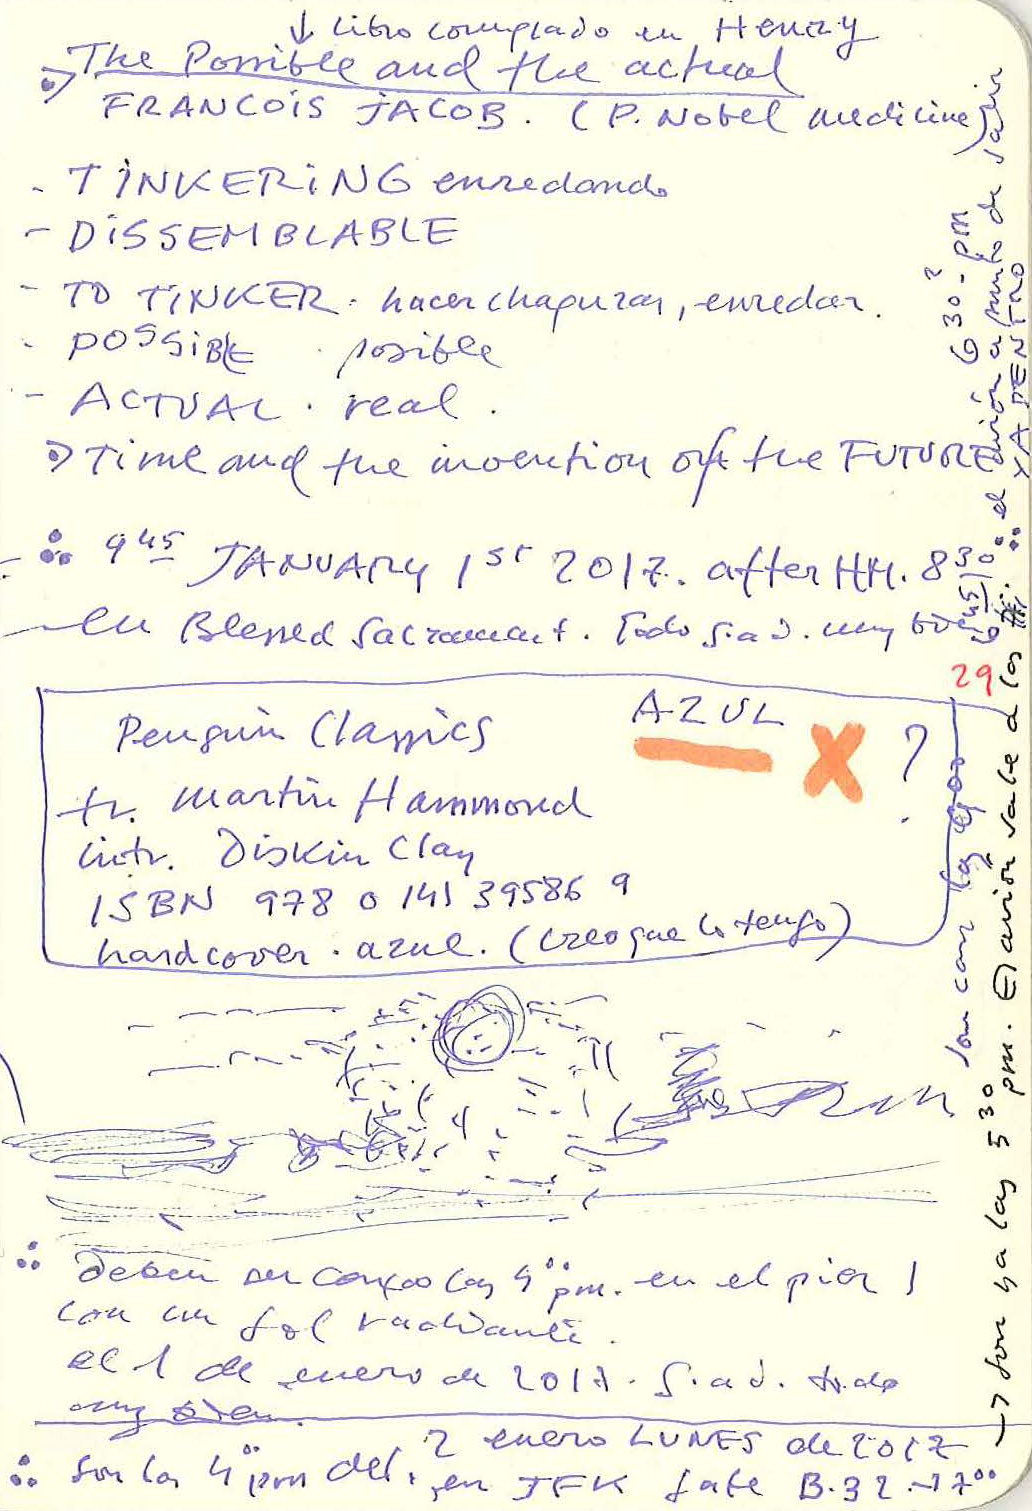 ↓ libro comprado en Henry
The Possible and the actual
FRANCOIS JACOB. (P. Nobel medicine)
- TINKERING enredando
- DISSEMBLABLE
- TO TINKER. hacer chapuzas, enredar.
- POSSIBLE . posible
- ACTUAL . real .
Time and the invention of the FUTURE
9 45 JANUARY 1st 2017. after HH. 8 30
en Blessed Sacrament. Todo g.a.d. muy
29
Penguin Classics AZUL X ?
tr. Martin Hammond
intr. Diskin Clay
ISBN 978 0 141 39586 9
hardcover . azul. (creo que lo tengo)
deben ser como las 4 00 pm. en el pier 1
con un sol radiante.
el 1 de enero de 2017. G.a.d. todo
muy bien.
son las 4 00 pm del 2 enero LUNES de 2017
en JFK Gate B.32 → 17 00
→ son ya las 5 30 pm. El avión sale a las
6 30 pm
el avión a punto de salir
YA DENTRO
son casi las